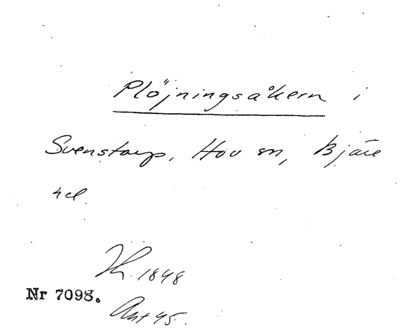 Plöjningsåkern i
Svenstorp, Hov sn, Bjäre
hd.
1848
Nr 7098.
Akt 45.